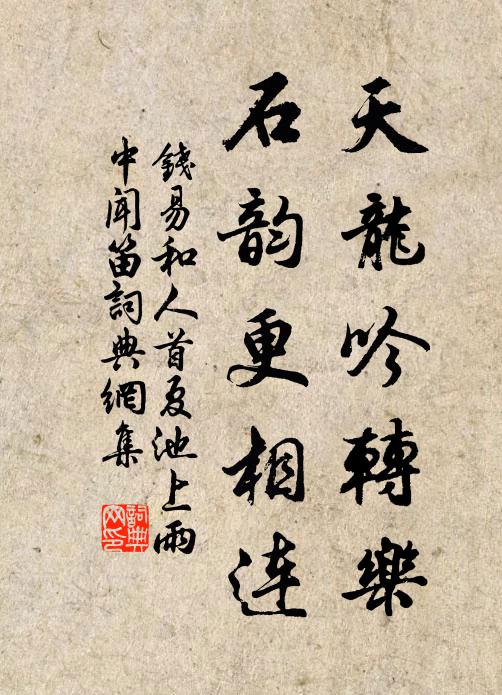 天龍吟轉樂
石韵更相連
錢易和人首夏池上雨
中闻笛詞典網集
詞典
网印